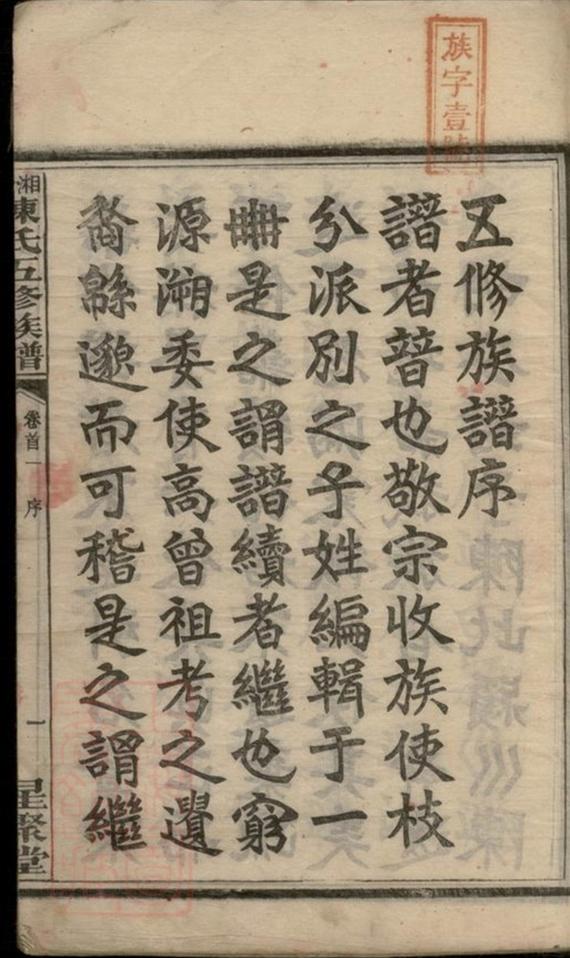 族字壹號
五修族譜序
譜者普也敬宗收族使枝
分派別之子姓編輯于一
冊是之謂譜續者繼也窮
源溯委使高曾祖考之遺
裔緜邈而可稽是之謂繼
湘陳氏五修族譜
卷首一 序
一
星聚堂